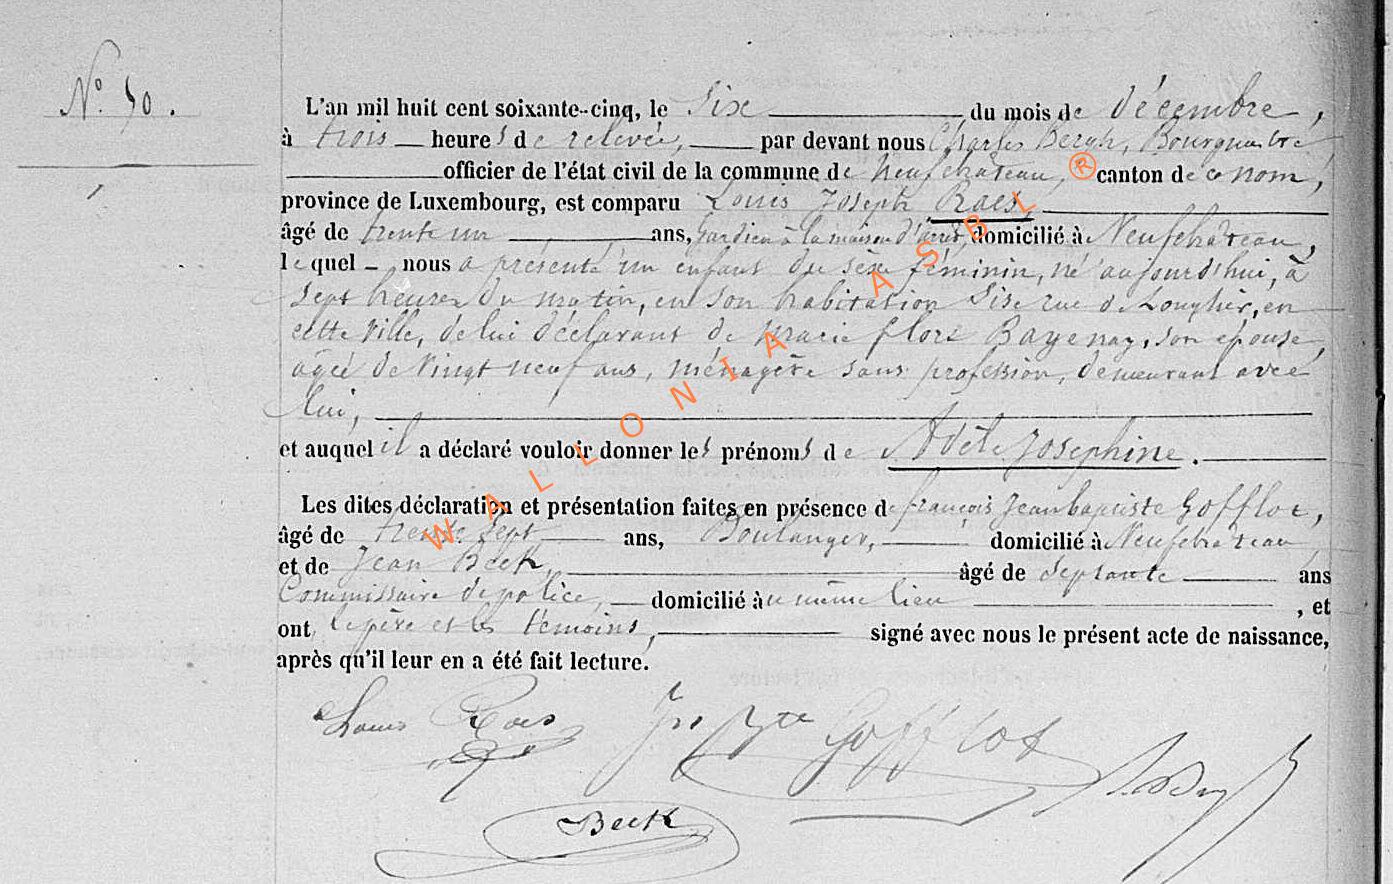 N° 50.
L'an mil huit cent soixante-cinq, le Six du mois de décembre,
à trois heures de relevée, par devant nous Charles Bergh, Bourgmestre
officier de l'état civil de la commune de Neufchâteau, ® canton de ce nom,
province de Luxembourg, est comparu Louis Joseph Raes,
âgé de trente un ans, gardien à la maison d'arrêt, domicilié à Neufchâteau,
lequel nous a présenté un enfant du sexe féminin, né aujourd'hui, à
sept heures du matin, en son habitation sise rue de Longlier, en
cette ville, de lui déclarant de Marie flore Bayenay, son épouse,
agée de vingt neuf ans, ménagère sans profession, demeurant avec
lui,
et auquel il a déclaré vouloir donner les prénoms de Adèle Josephine.
Les dites déclaration et présentation faites en présence de françois Jean baptiste Gofflot,
âgé de trente sept ans, Boulanger, domicilié à Neufchâteau
et de Jean Beck, âgé de septante ans
Commissaire de police, domicilié au même lieu, et
ont, le père et les témoins, signé avec nous le présent acte de naissance,
après qu'il leur en a été fait lecture.
Louis Raes Jn Bte Gofflot
Beck
WALLONIA ASBL